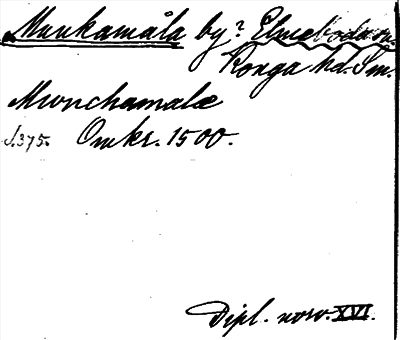 Munkamåla by? Elmeboda sn.
Konga hd. Sm.
Munchamalæ
s.375. Omkr. 1500.
Dipl. norv. XVI.